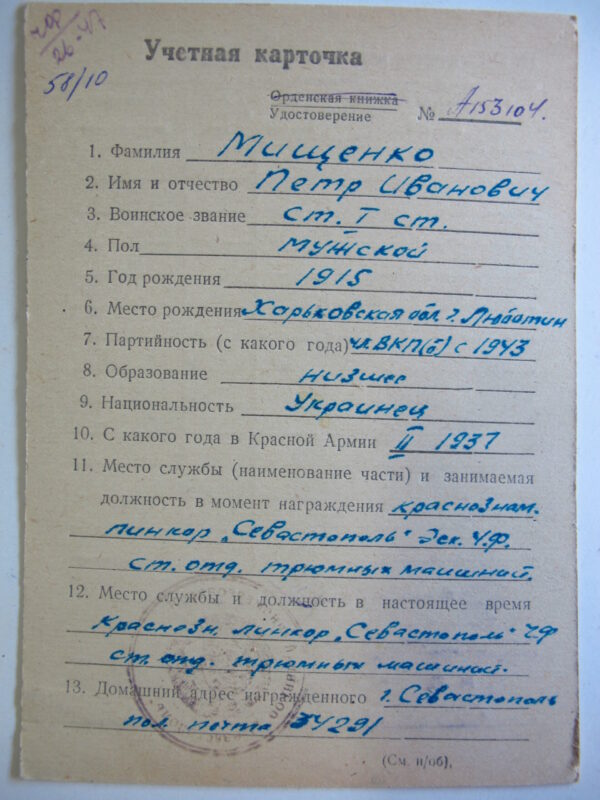 ЧФ
26-47
58/10
Учетная карточка
Орденская книжка
Удостоверение № А153104.
1. Фамилия Мищенко
2. Имя и отчество Петр Иванович
3. Воинское звание ст. I ст.
4. Пол мужской
5. Год рождения 1915
6. Место рождения Харьковская обл. г. Люботин
7. Партийность (с какого года) чл. ВКП(б) с 1943
8. Образование низшее
9. Национальность Украинец
10. С какого года в Красной Армии II 1937
11. Место службы (наименование части) и занимаемая
должность в момент награждения краснознам.
линкор „Севастополь" Эск. Ч.Ф.
ст. отд. трюмных машинист.
12. Место службы и должность в настоящее время
Краснозн. линкор „Севастополь" ЧФ
ст. отд. трюмных машинист.
13. Домашний адрес награжденного г. Севастополь
пол. почта 34291
(См. н/об).